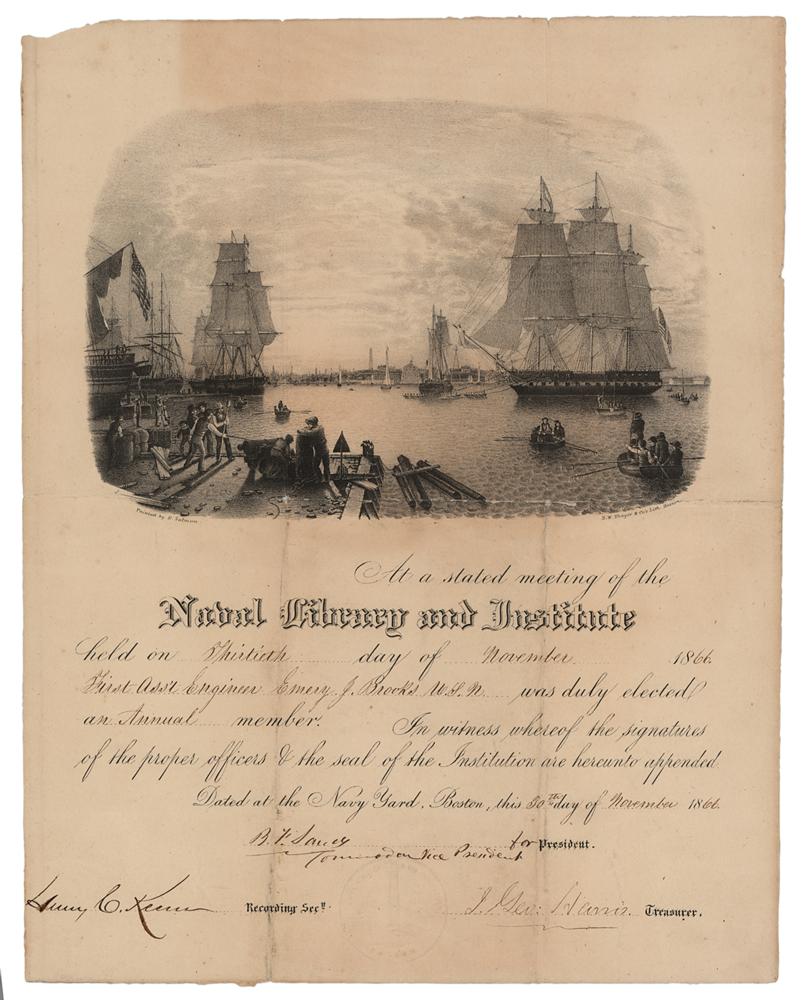 Painted by R. Salmon
B.W. Thayer & Co's Lith. Boston
At a stated meeting of the
Naval Library and Institute
held on Thirtieth day of November 1866
First Ass't Engineer Emery J. Brooks U.S.N. was duly elected
an Annual member. In witness whereof the signatures
of the proper officers & the seal of the Institution are hereunto appended.
Dated at the Navy Yard, Boston, this 30th day of November 1866.
B. F. Sands for President.
Commodore Vice President
Henry C. Recording Secy.
J. Geo: Harris. Treasurer.